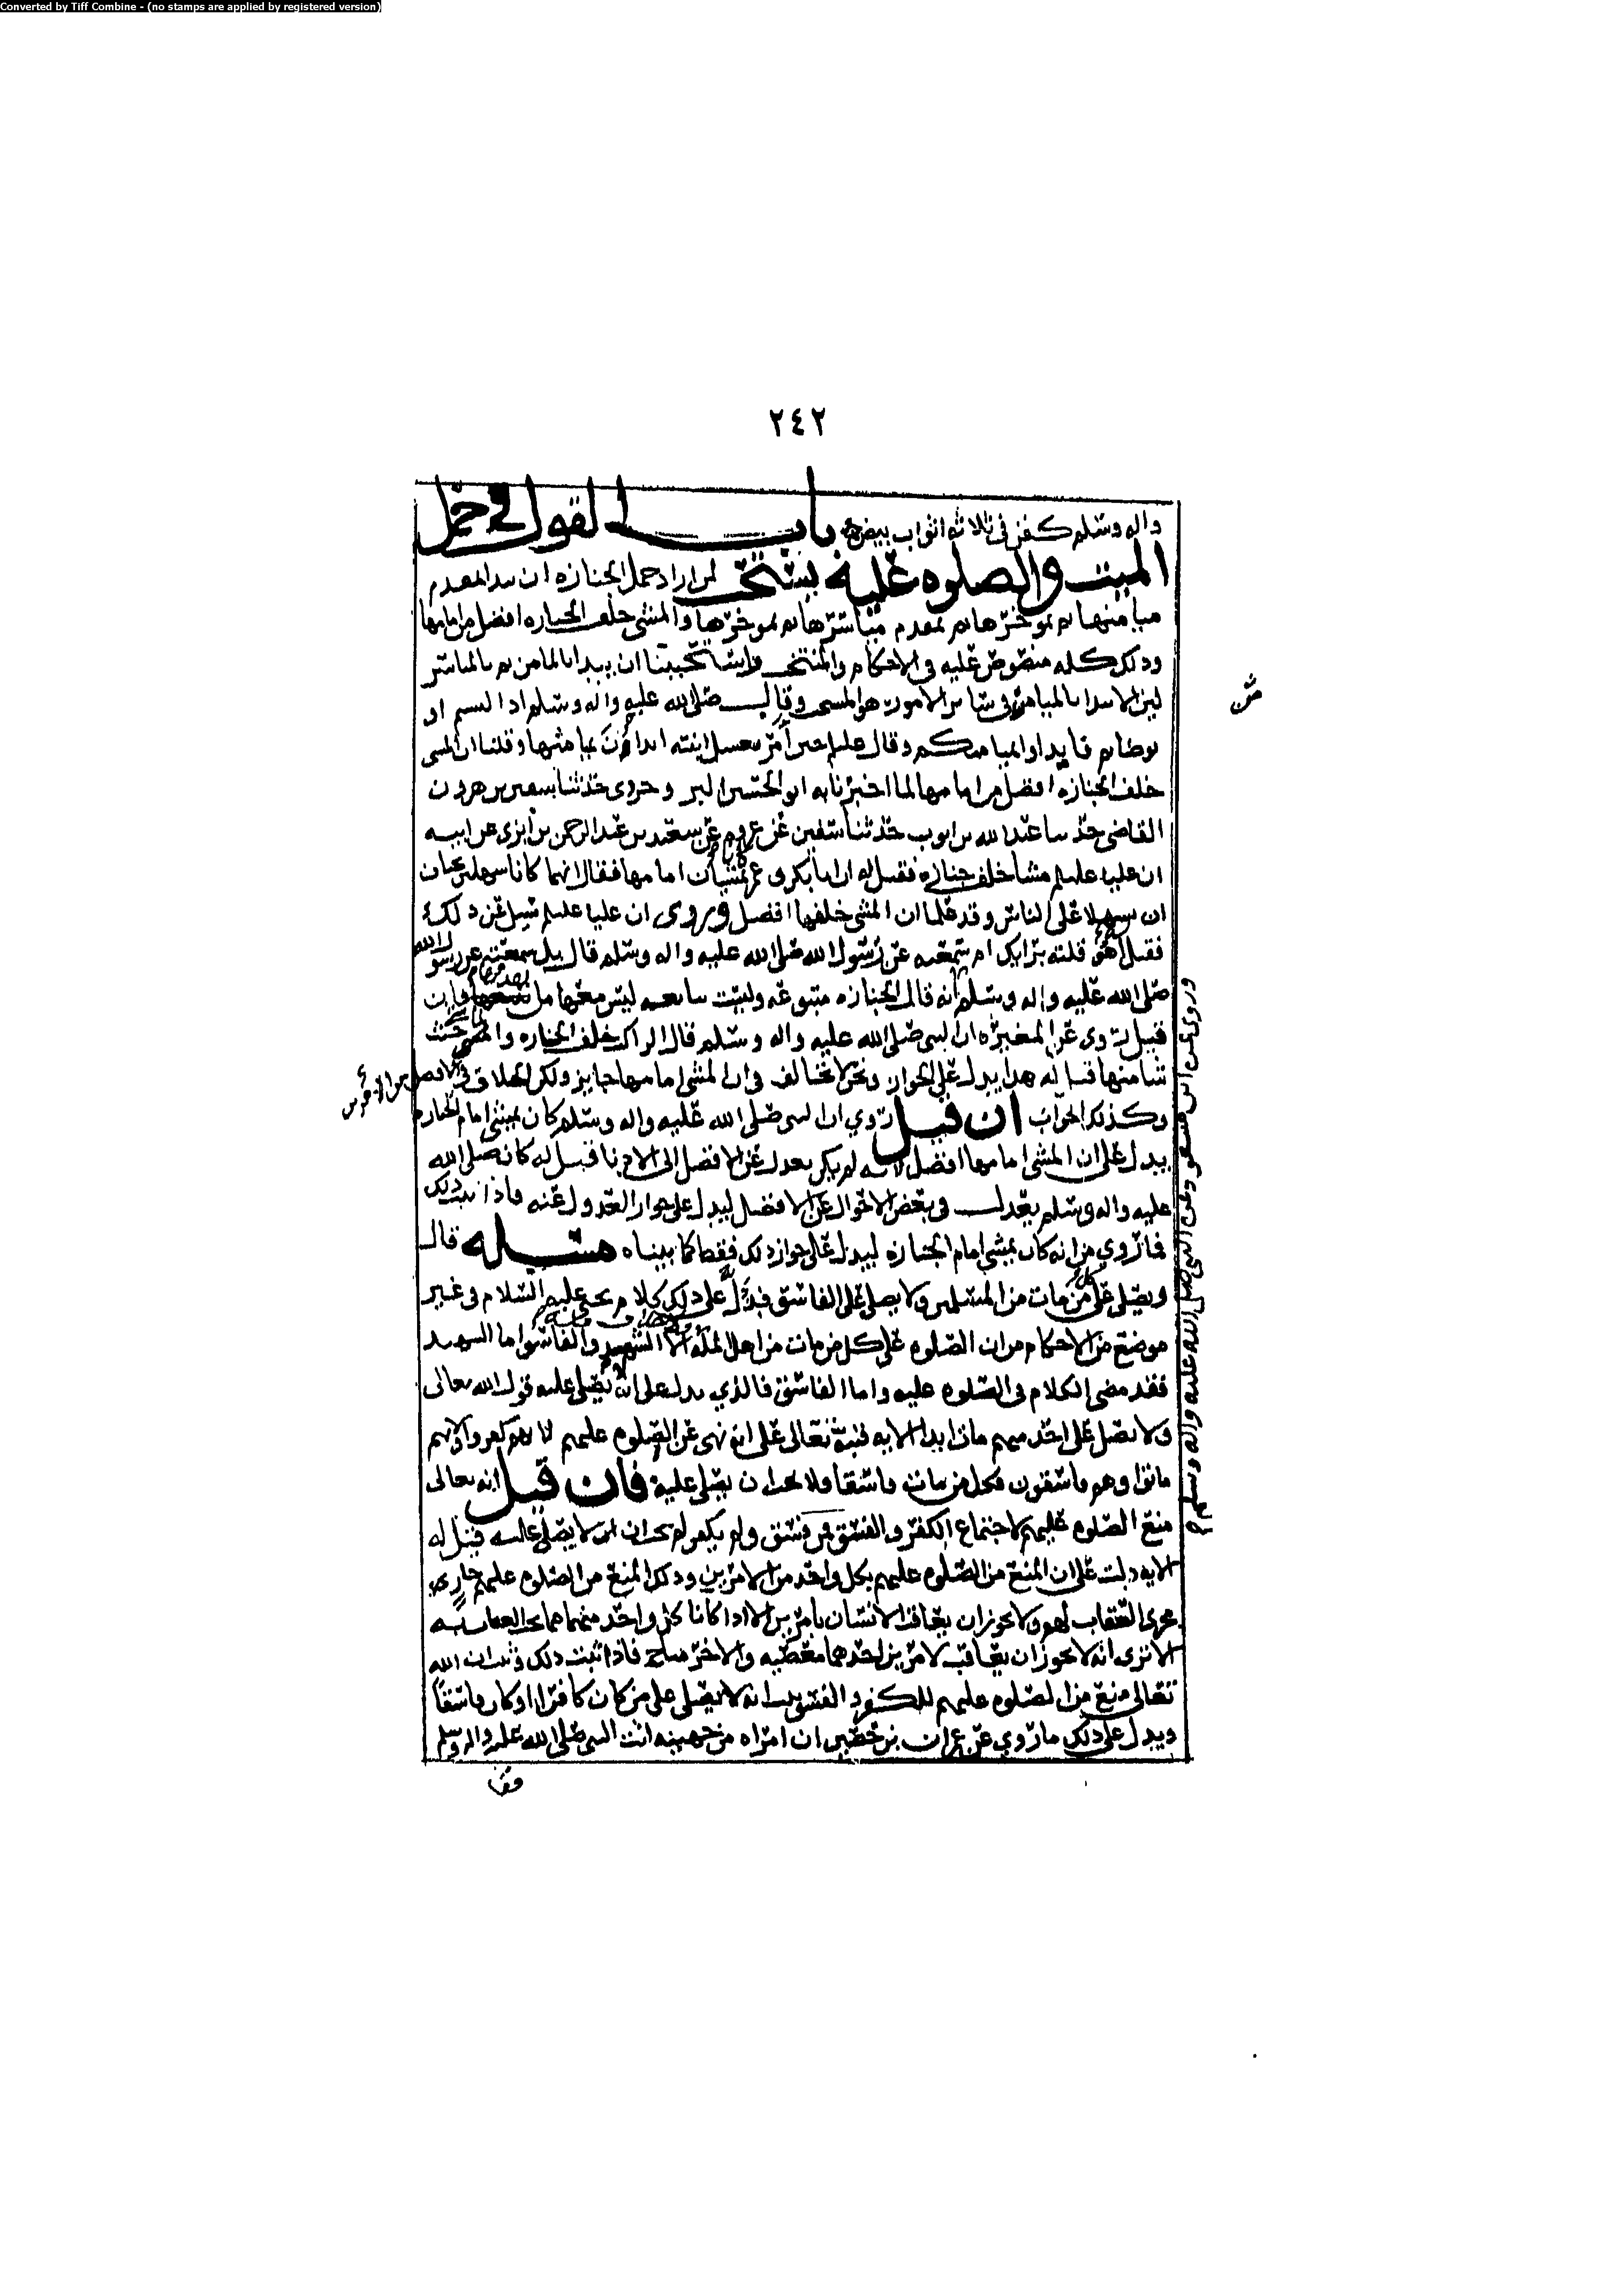 Converted by Tiff Combine - (no stamps are applied by registered version)
٢٤٢
واله وسلم كفن في ثلاثة اثواب بيض باب القول في حمل
الميت والصلوه عليه يستحب لمن اراد حمل الجنازه ان يبدا بمقدم
ميامنها ثم بموخرها ثم بمقدم مياسرها ثم بموخرها والمشي خلف الجنازه افضل من امامها
وذلك كله منصوص عليه في الاحكام والمنتخب واستحببنا ان يبدا بالميامن ثم بالمياسر
لان الابتدا بالميامن في سائر الامور هو المستحب وقال صلى الله عليه واله وسلم اذا لبستم او
توضاتم فابداوا بميامنكم وقال عليلم حين أمر بغسل ابنته ابدأون بميامنها وقلنا ان المشي
خلف الجنازه افضل من امامها لما اخبرنا به ابو الحسين البروجردي حدثنا سفين بن هرون
القاضي حدثنا عبد الله بن ايوب حدثنا سفين عن عروه عن سعيد بن عبد الرحمن بن أبزي عن ابيه
ان عليا عليلم مشا خلف جنازه فقيل له ان ابا بكر وعمر يمشيان امامها فقال انهما كانا سهلين يحبان
ان يسهلا على الناس وقد علما ان المشي خلفها افضل وروي ان عليا عليلم سيل عن ذلك
فقيل أهو قلته برايك ام سمعته عن رسول الله صلى الله عليه واله وسلم قال بل سمعته عن رسول الله
صلى الله عليه واله وسلم أنه قال الجنازه متبوعه وليست بتابعه ليس معها من تقدمها فان
قيل روي عن المغيره ان النبي صلى الله عليه واله وسلم قال الراكب خلف الجنازه والماشي حيث
شا منها قيل له هذا يدل على الجواز ونحن لا نخالف في ان المشي امامها جايز ولكن الخلاف في الافضل من الامرين
وكذلك الجواب ان قيل روي ان النبي صلى الله عليه واله وسلم كان يمشي امام الجنازه
يدل على ان المشي امامها افضل لانه لم يكن يعدل عن الافضل الى الادنا قيل له كان صلى الله
عليه واله وسلم يعدل في بعض الاحوال عن الافضل ليدل على جواز العدول عنه فاذا ثبت ذلك
فما روي من انه كان يمشي امام الجنازه ليدل على جواز ذلك فقط كما بيناه مسله قال
ويصلى على كل من مات من المسلمين ولا يصلى على الفاسق قد دل على ذلك كلام يحيى عليه السلام في غير
موضع من الاحكام من ان الصلوه على كل من مات من اهل المله الا الشهيد والفاسق اما الشهيد
فقد مضى الكلام في الصلوه عليه واما الفاسق فالذي يدل على انه لا يصلى عليه قول الله تعالى
ولا تصل على احد منهم مات ابدا الايه فنبه تعالى على انه نهى عن الصلوه عليهم لانهم كفروا وانهم
ماتوا وهم فاسقون فكل من مات فاسقا فلا يجب ان يصلى عليه فان قيل انه تعالى
منع الصلوه عليهم لاجتماع الكفر والفسق فمن فسق ولم يكفر لم يجب ان لا يصلى عليه قيل له
الايه دلت على ان المنع من الصلوه عليهم بكل واحد من الامرين وذلك المنع من الصلوه عليهم جاري
مجرى العقاب لهم ولا يجوز ان يعاقب الانسان بامرين الا اذا كانا كل واحد منهما مما يجب العقاب به
الا ترى انه لا يجوز ان يعاقب لامرين احدهما معصيه والاخر مباح فاذا ثبت ذلك وثبت ان الله
تعالى منع من الصلوه عليهم للكفر والفسق ثبت انه لا يصلى على من كان كافرا او كان فاسقا
ويدل على ذلك ما روي عن عمران بن حصين ان امراه من جهينه اتت النبي صلى الله عليه واله وسلم
فقا
وروي عن ابن مسعود عن النبي صلى الله عليه واله وسلم